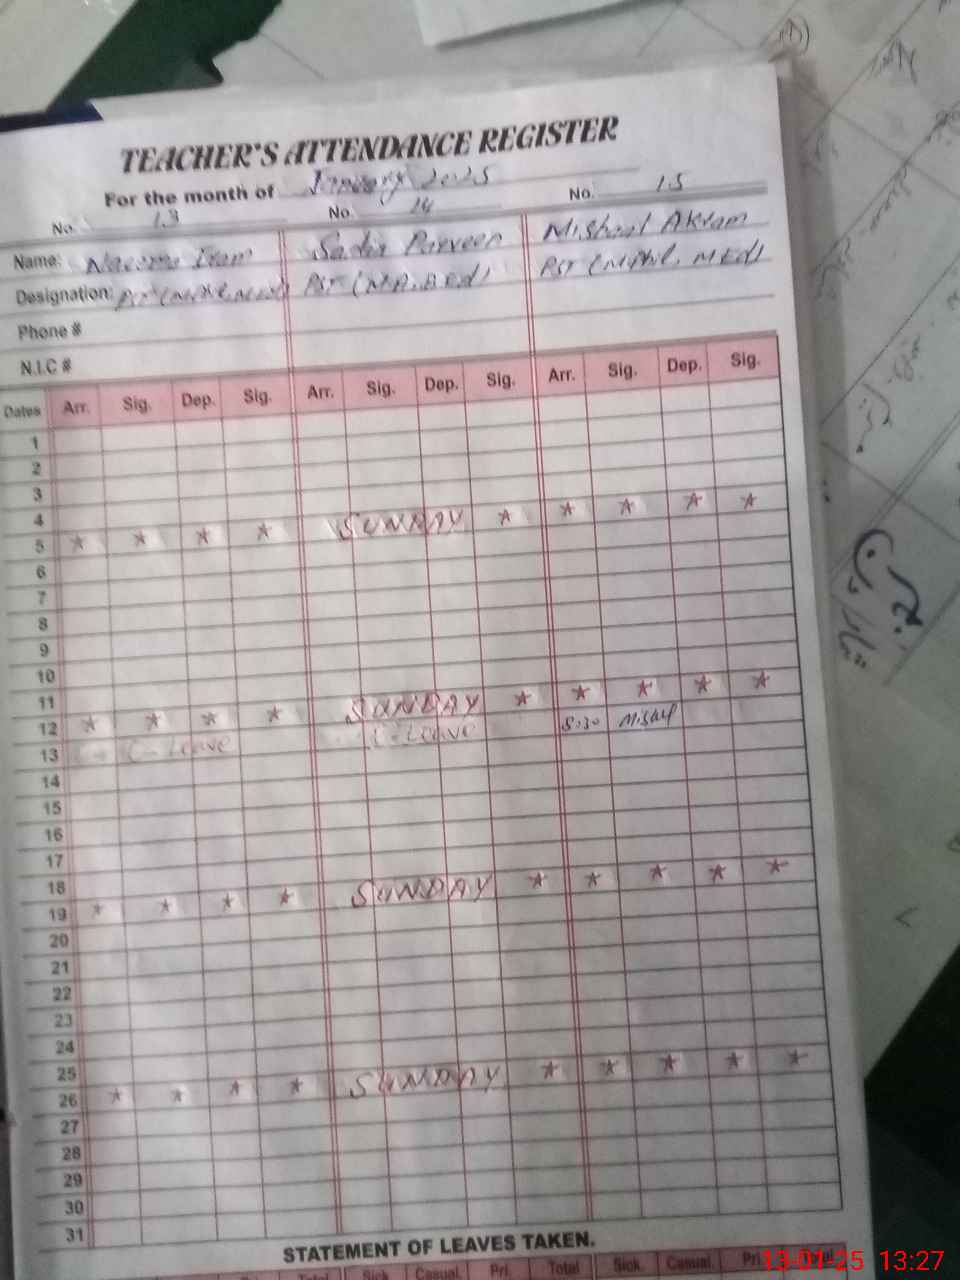 TEACHER'S ATTENDANCE REGISTER
For the month of January 2025
No. 13 No. 14 No. 15
Name: Naeema Sadia Parveen Mishaal Akram
Designation: PST (M.Phil, M.Ed) PST (M.A, B.Ed) PST (M.Phil, M.Ed)
Phone #
N.I.C #
Dates Arr. Sig. Dep. Sig. Arr. Sig. Dep. Sig. Arr. Sig. Dep. Sig.
1
2
3
4
5 * * * * SUNDAY * * * * *
6
7
8
9
10
11
12 * * * * SUNDAY * * * * *
13 C-Leave C-Leave 8:30 Mishal
14
15
16
17
18
19 * * * * SUNDAY * * * * *
20
21
22
23
24
25
26 * * * * SUNDAY * * * * *
27
28
29
30
31
STATEMENT OF LEAVES TAKEN.
Total Sick. Casual. Pri. Total Sick. Casual. Pri.
13-01-25 13:27